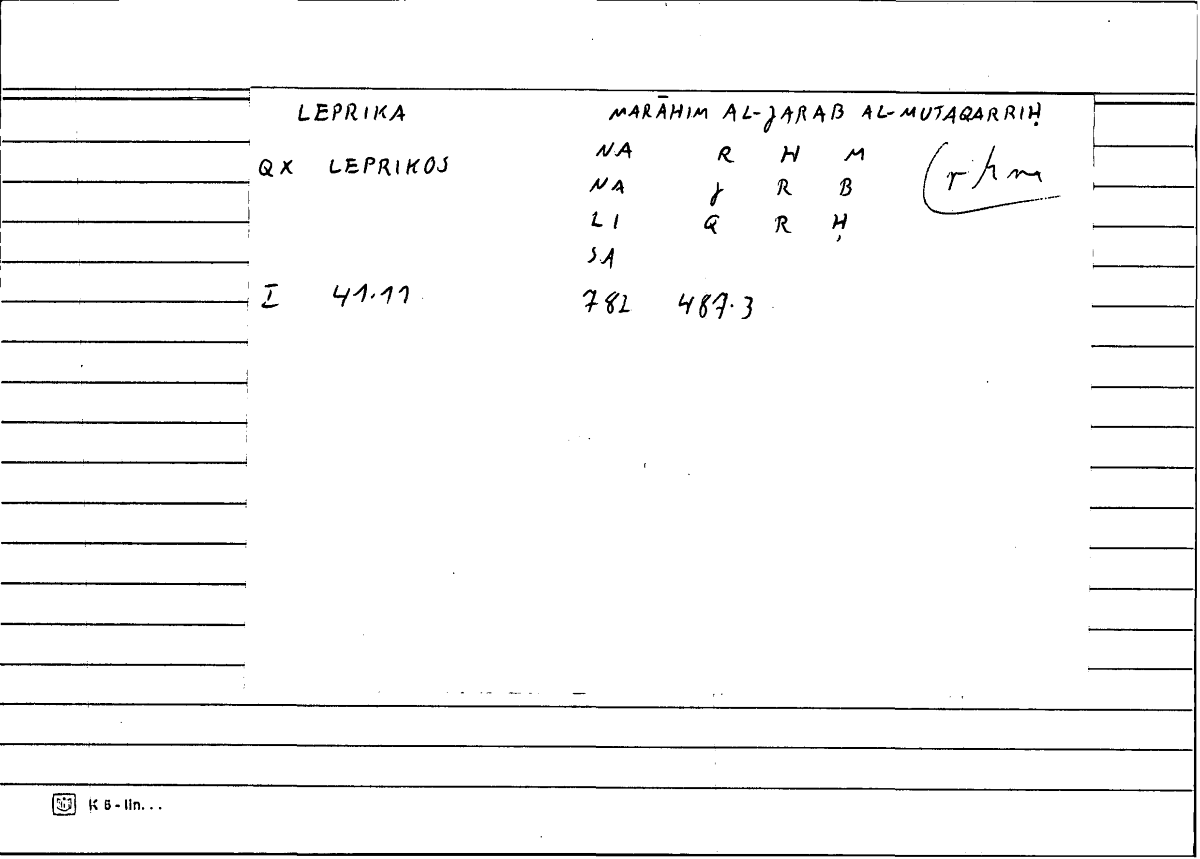 LEPRIKA MARĀHIM AL-JARAB AL-MUTAQARRIḤ
QX LEPRIKOS NA R H M rhm
NA J R B
LI Q R Ḥ
SA
I 41.11 782 487.3
K 6 - lin...